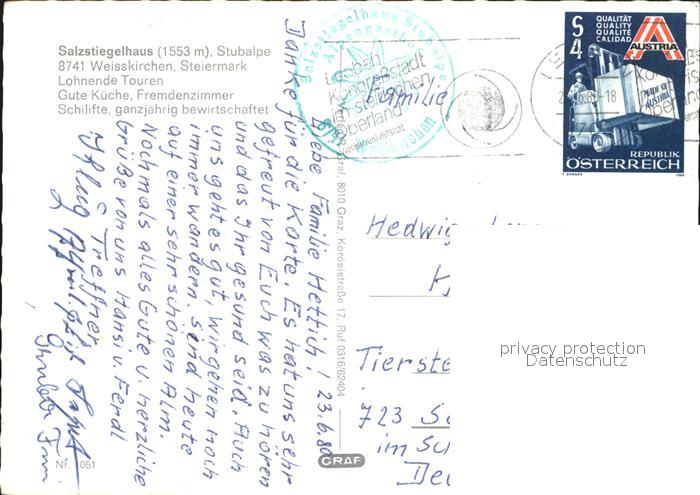 Salzstiegelhaus (1553 m), Stubalpe
8741 Weisskirchen, Steiermark
Lohnende Touren
Gute Küche, Fremdenzimmer
Schilifte, ganzjährig bewirtschaftet
Liebe Familie Hettich! 23.6.80
Danke für die Karte. Es hat uns sehr
gefreut von Euch was zu hören
und das Ihr gesund seid. Auch
uns geht es gut, wir gehen noch
immer wandern. Sind heute
auf einer sehr schönen Alm.
Nochmals alles Gute u. herzliche
Grüße von uns Hansi u. Ferdl
Treffner
Nf. 051
Graf. 8010 Graz, Körösistraße 17, Ruf 0316/62404
GRAF
Salzstiegelhaus Stubalpe
Leoben
Kongreßstadt
im steirischen
Oberland
Montanuniversität
S
4
QUALITÄT
QUALITY
QUALITÉ
CALIDAD
A
AUSTRIA
MADE IN
AUSTRIA
REPUBLIK
ÖSTERREICH
1980
Familie
Hedwig
Tierste
723 Sc
im Sc
privacy protection
Datenschutz